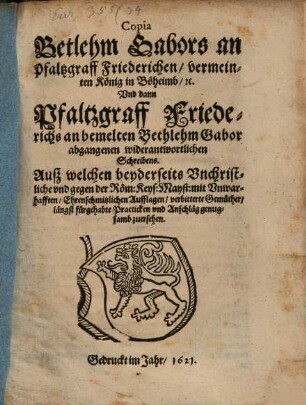 Eur. 355/34
Copia
Betlehm Gabors an
Pfaltzgraff Friederichen / vermein-
ten König in Böheimb / ꝛc.
Vnd dann
Pfaltzgraff Friede-
richs an bemelten Bethlehm Gabor
abgangenen widerantwortlichen
Schreibens.
Auß welchen beyderseits Vnchrist-
liche vnd gegen der Röm: Keys: Mayst: mit Vnwar-
hafften / Ehrenschmitzlichen Aufflagen / verbitterte Gemüther /
längst fürgehabte / Practicken vnd Anschläg genug-
samb zuersehen.
Gedruckt im Jahr / 1621.